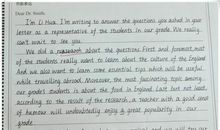 Dear Dr. Smith,
I'm Li Hua. I'm writing to answer the questions you asked in your
letter as a representative of the students in our grade. We really
can't wait to see you.
We did a research about the questions. First and foremost, most
of the students really want to learn about the culture of the England.
And we also want to learn some essential tips which will be useful
while travelling abroad. Moreover, the most fascinating topic among
our grade's students is about the food in England. Last but not least,
according to the result of the research, a teacher with a good sense
of humour will undoubtedly enjoy great popularity in our
grade.